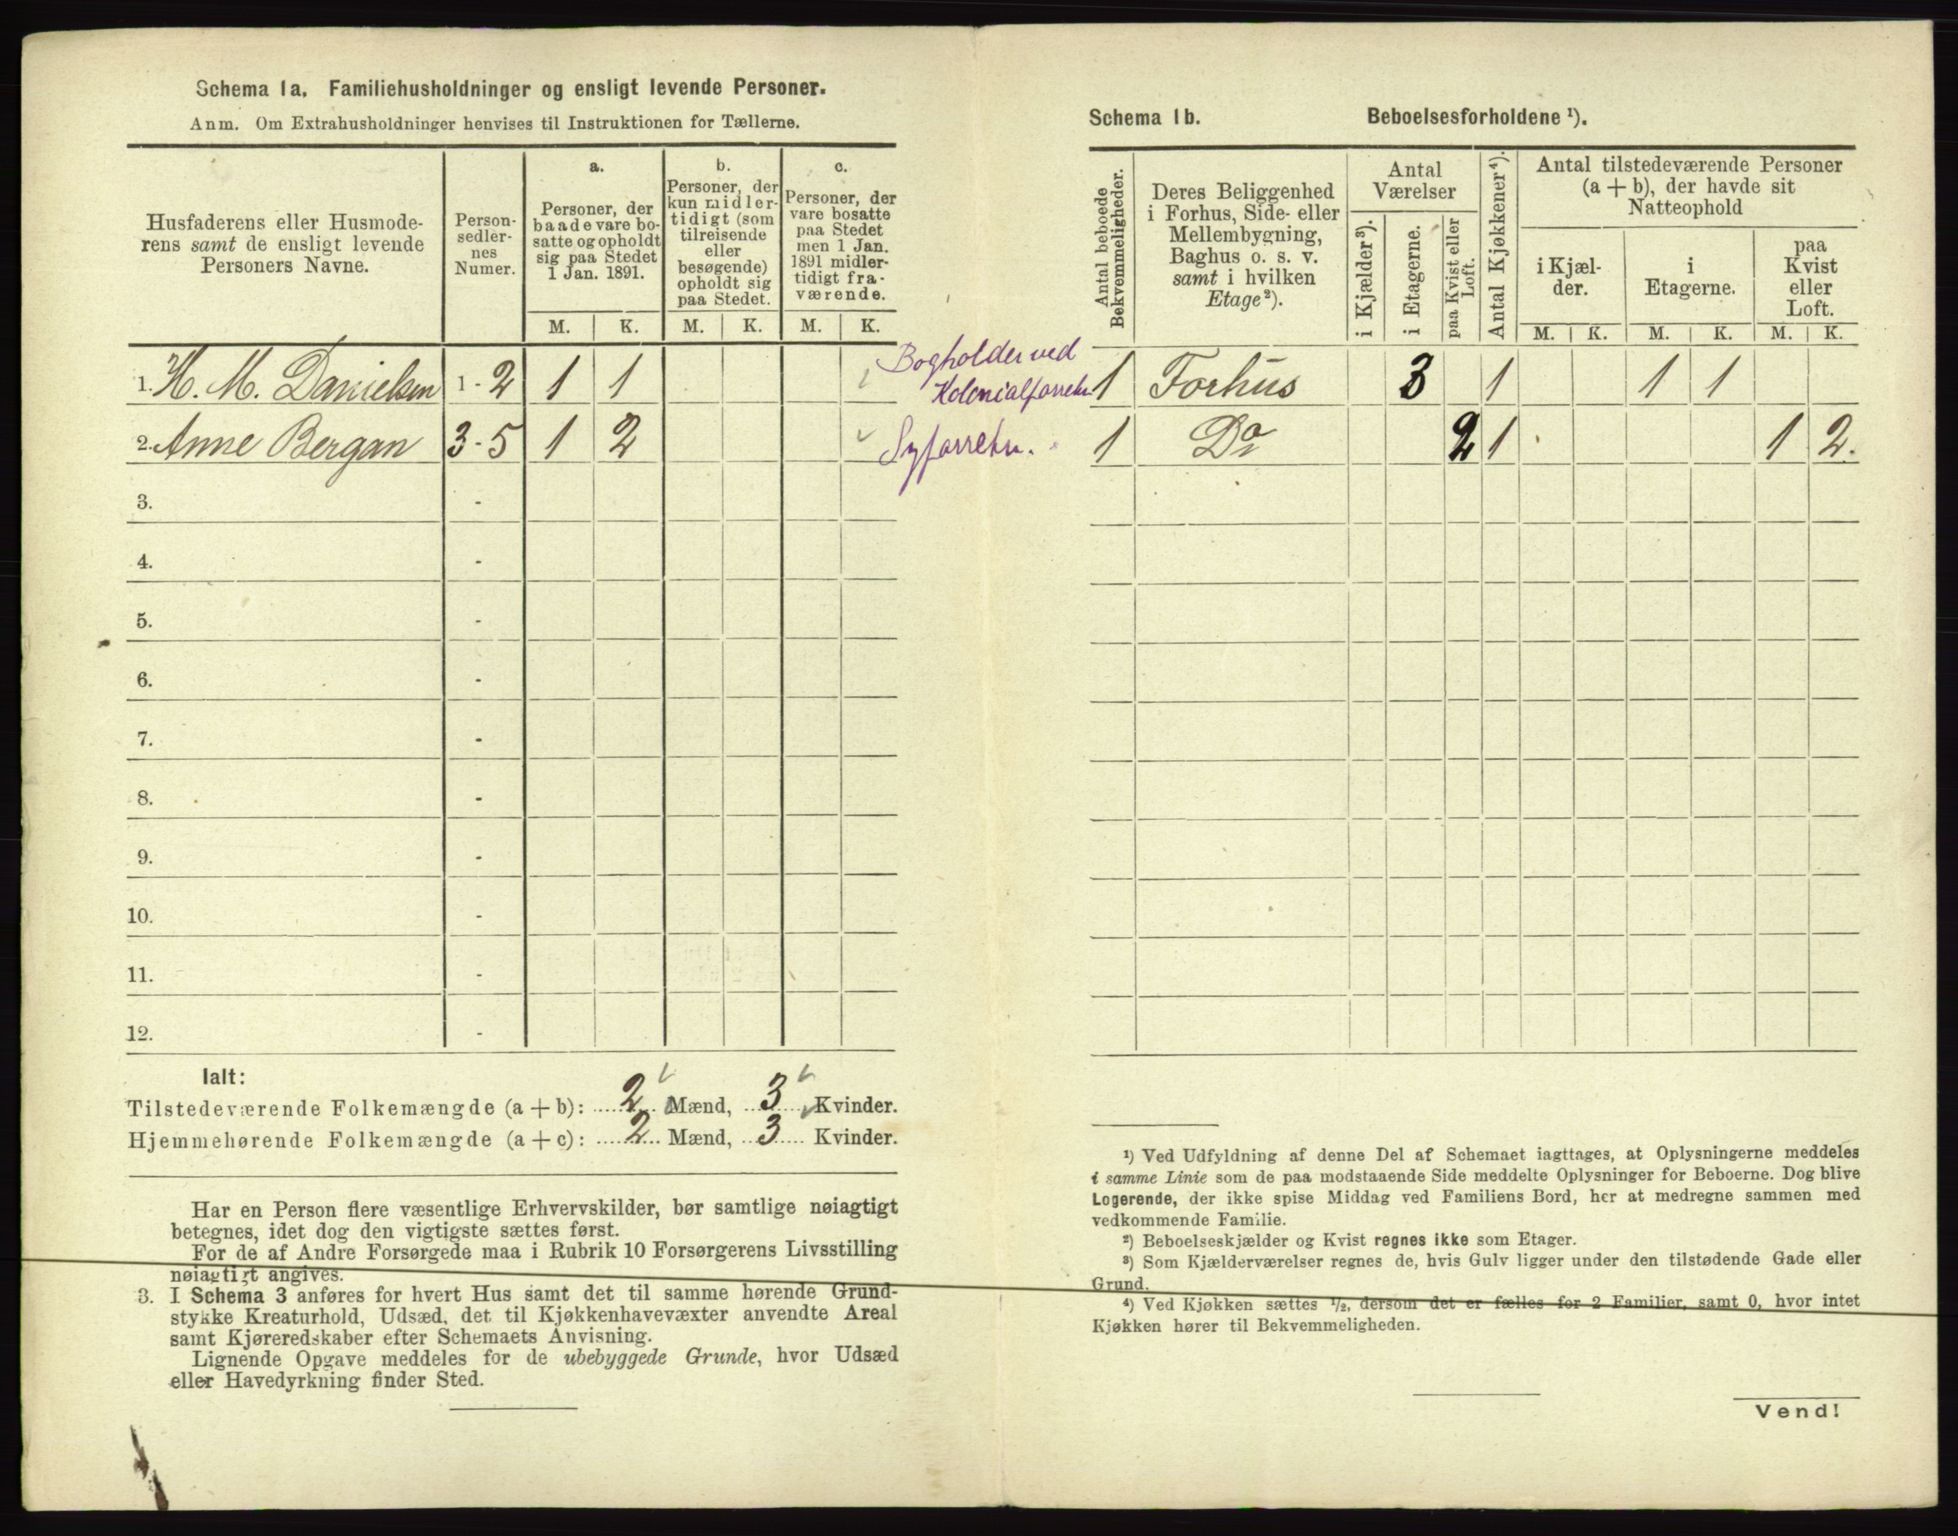 Schema 1a. Familiehusholdninger og ensligt levende Personer.
Anm. Om Extrahusholdninger henvises til Instruktionen for Tællerne.
Husfaderens eller Husmode-
rens samt de ensligt levende
Personers Navne.
Person-
sedler-
nes
Numer.
a.
Personer, der
baade vare bo-
satte og opholdt
sig paa Stedet
1 Jan. 1891.
b.
Personer, der
kun midler-
tidigt (som
tilreisende
eller
besøgende)
opholdt sig
paa Stedet.
c.
Personer, der
vare bosatte
paa Stedet
men 1 Jan.
1891 midler-
tidigt fra-
værende.
M. K. M. K. M. K.
1. H. M. Danielsen 1 - 2 1 1
Bogholder ved
Kolonialforretn.
2. Anne Bergan 3 - 5 1 2
Syforretn.
3. -
4. -
5. -
6. -
7. -
8. -
9. -
10. -
11. -
12. -
Ialt:
Tilstedeværende Folkemængde (a + b): 2 Mænd, 3 Kvinder.
Hjemmehørende Folkemængde (a + c): 2 Mænd, 3 Kvinder.
Har en Person flere væsentlige Erhvervskilder, bør samtlige nøiagtigt
betegnes, idet dog den vigtigste sættes først.
For de af Andre Forsørgede maa i Rubrik 10 Forsørgerens Livsstilling
nøiagtigt angives.
3. I Schema 3 anføres for hvert Hus samt det til samme hørende Grund-
stykke Kreaturhold, Udsæd, det til Kjøkkenhavevæxter anvendte Areal
samt Kjøreredskaber efter Schemaets Anvisning.
Lignende Opgave meddeles for de ubebyggede Grunde, hvor Udsæd
eller Havedyrkning finder Sted.
Schema 1b. Beboelsesforholdene ¹).
Antal beboede
Bekvemmeligheder.
Deres Beliggenhed
i Forhus, Side- eller
Mellembygning,
Baghus o. s. v.
samt i hvilken
Etage²).
Antal
Værelser
i Kjælder³).
i Etagerne.
paa Kvist eller
Loft.
Antal Kjøkkener⁴).
Antal tilstedeværende Personer
(a + b), der havde sit
Natteophold
i Kjæl-
der.
i
Etagerne.
paa
Kvist
eller
Loft.
M. K. M. K. M. K.
1 Forhus 3 1 1 1
1 Do 2 1 1 2.
¹) Ved Udfyldning af denne Del af Schemaet iagttages, at Oplysningerne meddeles
i samme Linie som de paa modstaaende Side meddelte Oplysninger for Beboerne. Dog blive
Logerende, der ikke spise Middag ved Familiens Bord, her at medregne sammen med
vedkommende Familie.
²) Beboelseskjælder og Kvist regnes ikke som Etager.
³) Som Kjælderværelser regnes de, hvis Gulv ligger under den tilstødende Gade eller
Grund.
⁴) Ved Kjøkken sættes ½, dersom det er fælles for 2 Familier, samt 0, hvor intet
Kjøkken hører til Bekvemmeligheden.
Vend!